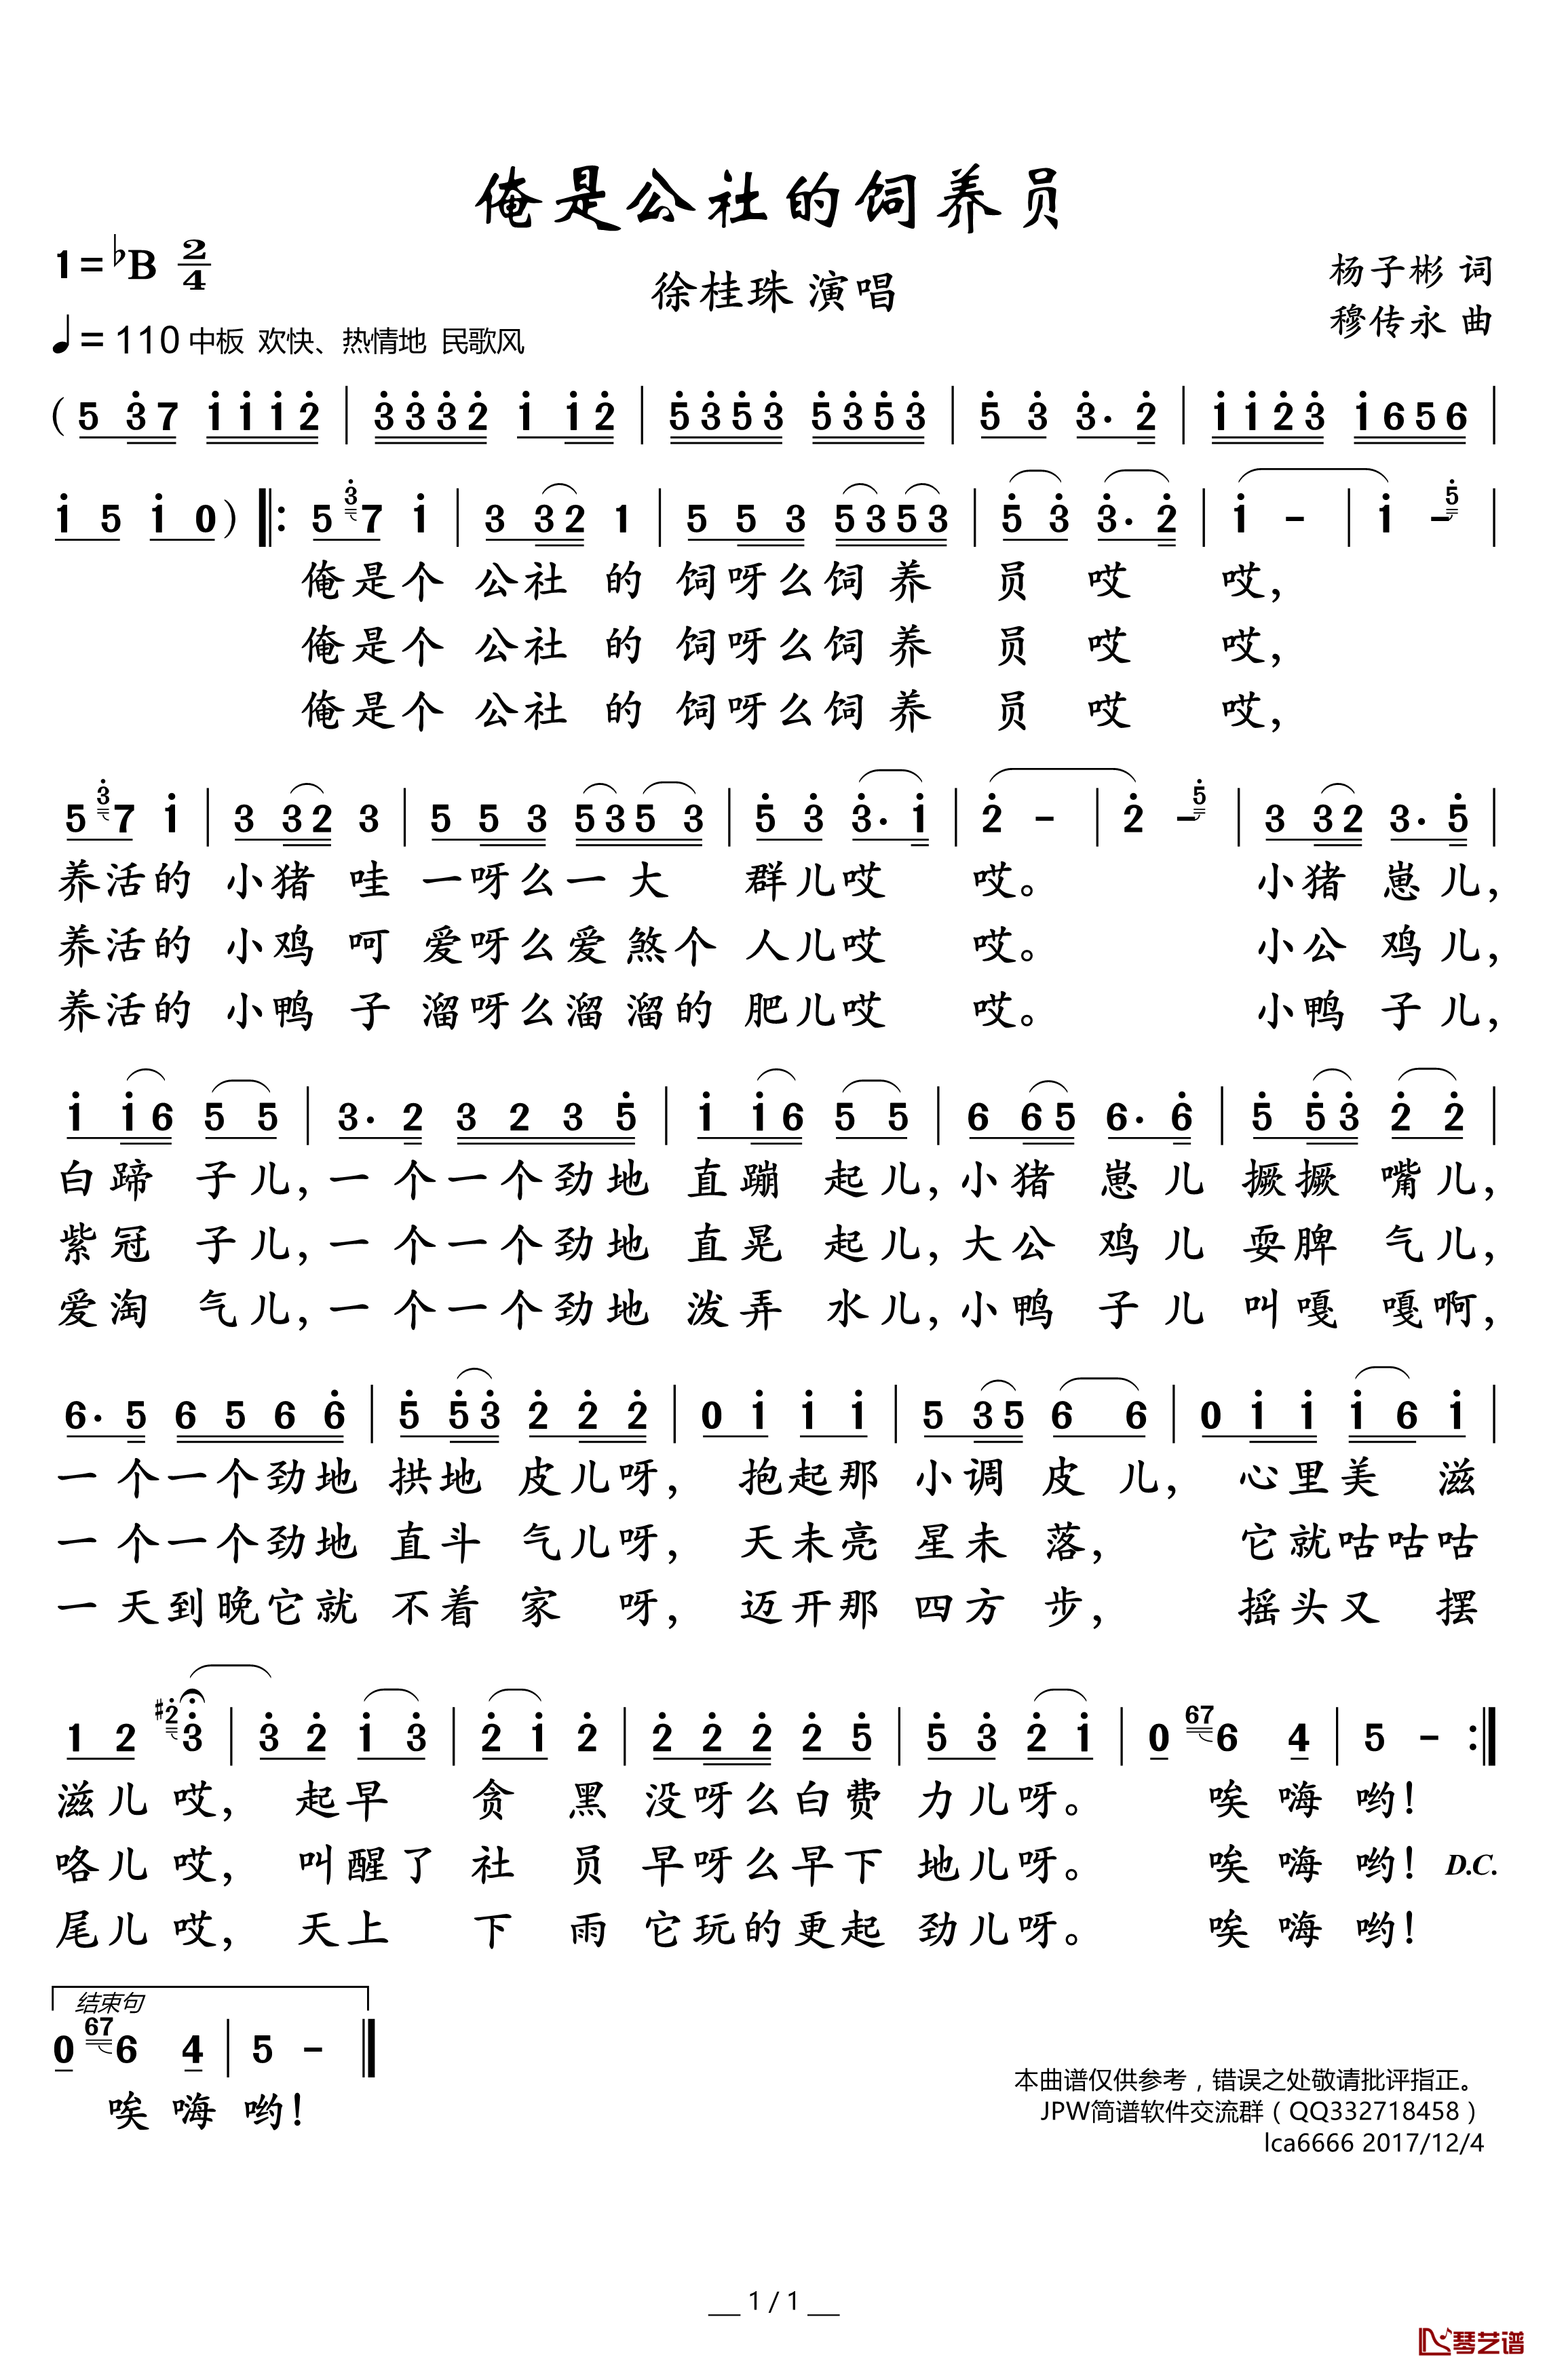 俺是公社的饲养员
1=♭B 2/4
徐桂珠 演唱
杨子彬 词
穆传永 曲
♩= 110 中板 欢快、热情地 民歌风
( 5 3̇ 7 1̇ 1̇ 1̇ 2̇ | 3̇ 3̇ 3̇ 2̇ 1̇ 1̇ 2̇ | 5̇ 3̇ 5̇ 3̇ 5̇ 3̇ 5̇ 3̇ | 5̇ 3̇ 3̇. 2̇ | 1̇ 1̇ 2̇ 3̇ 1̇ 6 5 6 |
1̇ 5 1̇ 0 ) ‖: 5 3̇ 7 1̇ | 3 3 2 1 | 5 5 3 5 3 5 3 | 5̇ 3̇ 3̇. 2̇ | 1̇ - | 1̇ - 5̇ |
俺是个 公社 的 饲呀么饲 养 员 哎 哎，
俺是个 公社 的 饲呀么饲 养 员 哎 哎，
俺是个 公社 的 饲呀么饲 养 员 哎 哎，
5 3̇ 7 1̇ | 3 3 2 3 | 5 5 3 5 3 5 3 | 5̇ 3̇ 3̇. 1̇ | 2̇ - | 2̇ - 5̇ | 3 3 2 3. 5̇ |
养活的 小猪 哇 一呀么一 大 群儿哎 哎。 小猪 崽儿，
养活的 小鸡 呵 爱呀么爱 煞个 人儿哎 哎。 小公 鸡儿，
养活的 小鸭 子 溜呀么溜 溜的 肥儿哎 哎。 小鸭 子儿，
1̇ 1̇ 6 5 5 | 3. 2 3 2 3 5̇ | 1̇ 1̇ 6 5 5 | 6 6 5 6. 6̇ | 5̇ 5̇ 3̇ 2̇ 2̇ |
白蹄 子儿，一 个一个劲地 直蹦 起儿，小猪 崽儿 撅撅 嘴儿，
紫冠 子儿，一 个一个劲地 直晃 起儿，大公 鸡儿 耍脾 气儿，
爱淘 气儿，一 个一个劲地 泼弄 水儿，小鸭 子儿 叫嘎 嘎啊，
6. 5 6 5 6 6̇ | 5̇ 5̇ 3̇ 2̇ 2̇ 2̇ | 0 1̇ 1̇ 1̇ | 5 3 5 6 6 | 0 1̇ 1̇ 1̇ 6 1̇ |
一 个一个劲地 拱地 皮儿呀， 抱起那 小调 皮儿， 心里美 滋
一 个一个劲地 直斗 气儿呀， 天未亮 星未 落， 它就咕咕咕
一 天到晚它就 不着 家 呀， 迈开那 四方 步， 摇头又 摆
1 2 #2̇ 3̇ | 3̇ 2̇ 1̇ 3̇ | 2̇ 1̇ 2̇ | 2̇ 2̇ 2̇ 2̇ 5̇ | 5̇ 3̇ 2̇ 1̇ | 0 67 6 4 | 5 - :‖
滋儿 哎， 起早 贪 黑 没呀么白费 力儿呀。 唉 嗨 哟！
咯儿 哎， 叫醒了 社 员 早呀么早下 地儿呀。 唉 嗨 哟！ D.C.
尾儿 哎， 天上 下 雨 它玩的更起 劲儿呀。 唉 嗨 哟！
结束句
0 67 6 4 | 5 - ‖
唉 嗨 哟！
本曲谱仅供参考，错误之处敬请批评指正。
JPW简谱软件交流群（QQ332718458）
lca6666 2017/12/4
1 / 1
琴艺谱